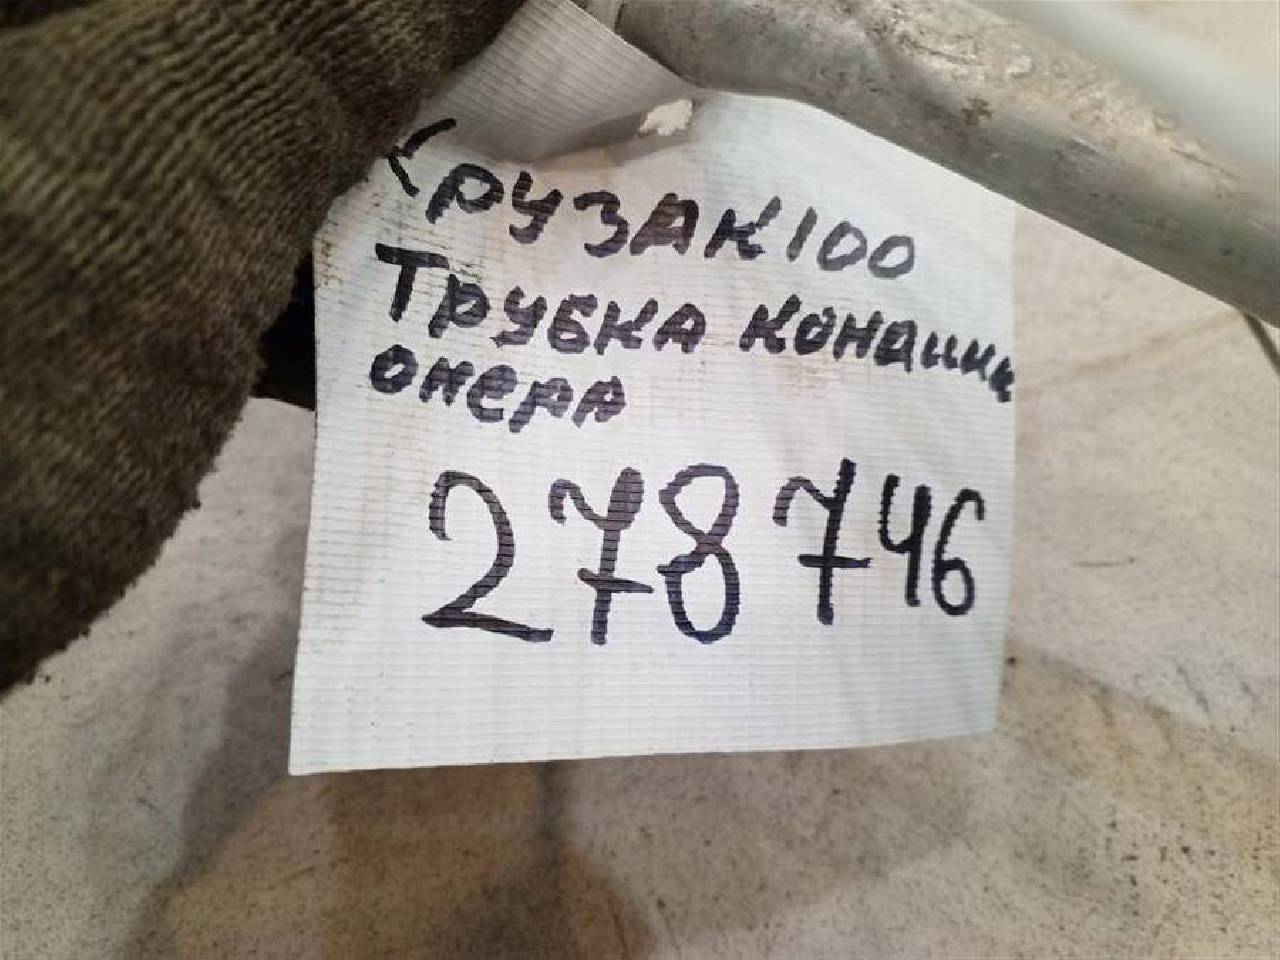 КРУЗАК100
ТРУБКА КОНДИЦИ
ОНЕРА
278746